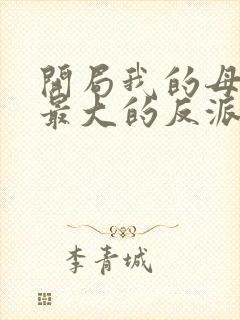 開局我的母
最大的反派
李青城